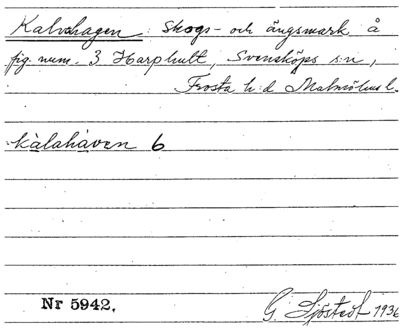 Kalvahagen : Skogs- och ängsmark å
fig. num. 3 Harphult, Svensköps s:n,
Frosta h:d Malmöhus l.
kàlahàven 6
Nr 5942.
G. Sjöstedt 1936